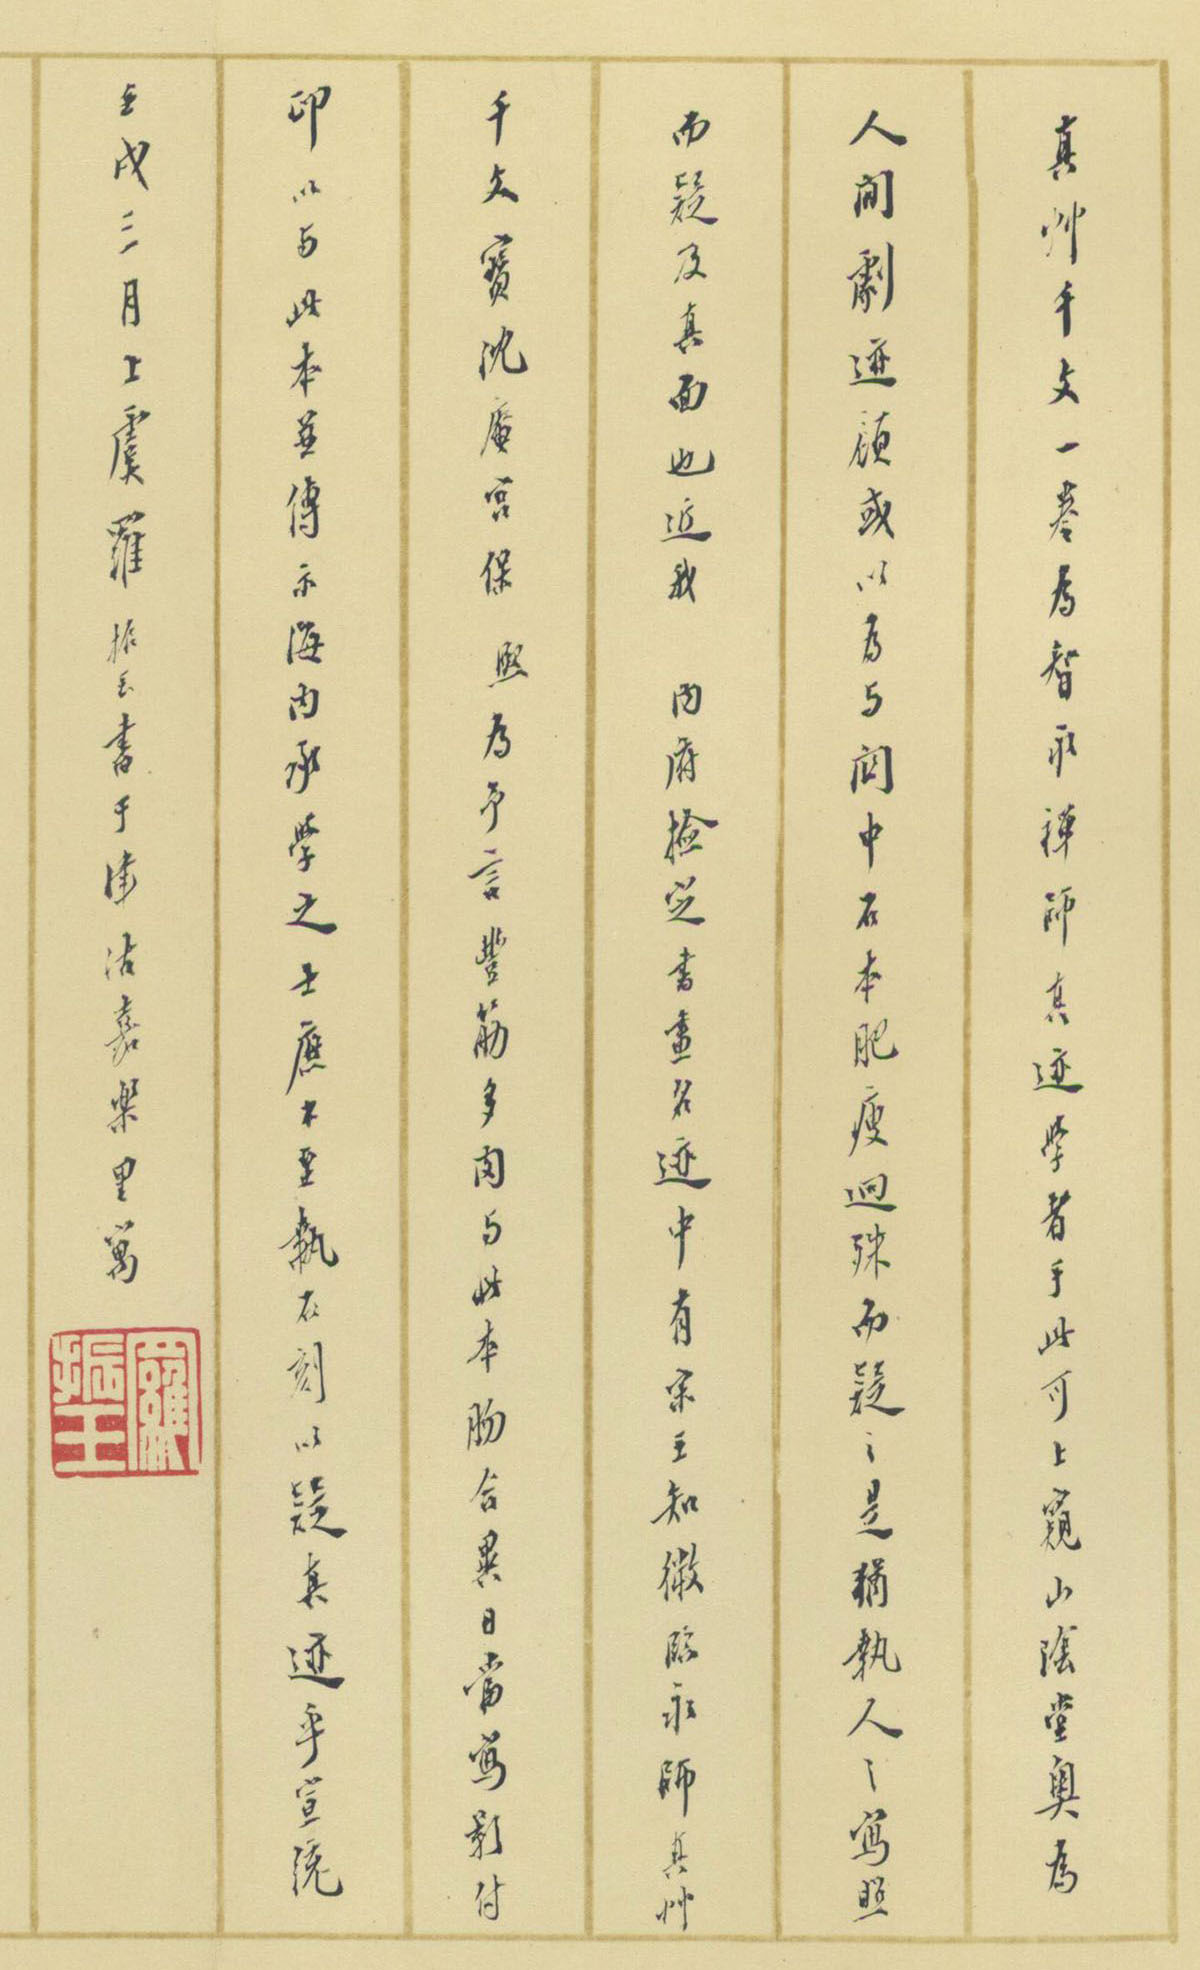 真艸千文一卷為智永禪師真迹學者手此可上窺山陰堂奧為
人間劇迹顧或以為与関中石本肥瘦迥殊而疑之是猶執人之寫照
而疑及真面也近我 内府撿定書畫名迹中有宋王知微臨永師真艸
千文寶沈庵宮保 熙為予言豐筋多肉与此本脗合異日當寫影付
印以与此本並傳示海内承學之士庶不至執石刻以疑真迹乎宣統
壬戌三月上虞羅振玉書于津沽嘉樂里寓
羅振玉